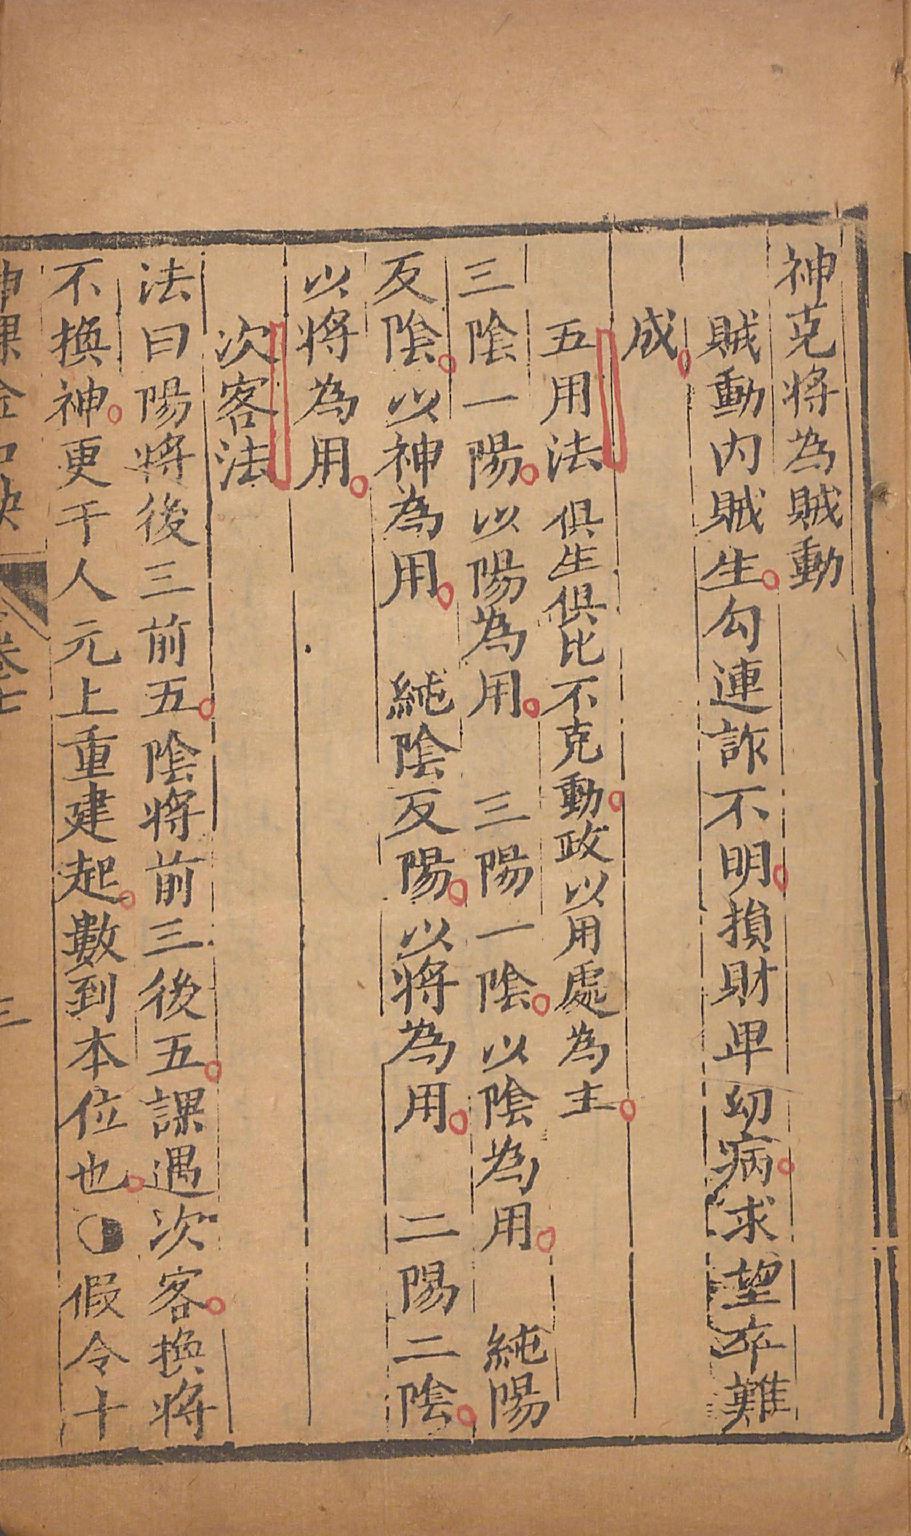 神克将為賊動
賊動内賊生勾連詐不明損財卑幼病求望卒難
成
五用法俱生俱比不克動政以用處為主
三陰一陽以陽為用　三陽一陰以陰為用　純陽
反陰以神為用　純陰反陽以将為用　二陽二陰
以将為用
次客法
法曰陽将後三前五陰将前三後五課遇次客換将
不換神更干人元上重建起數到本位也假令十
神課金口訣　卷七　三